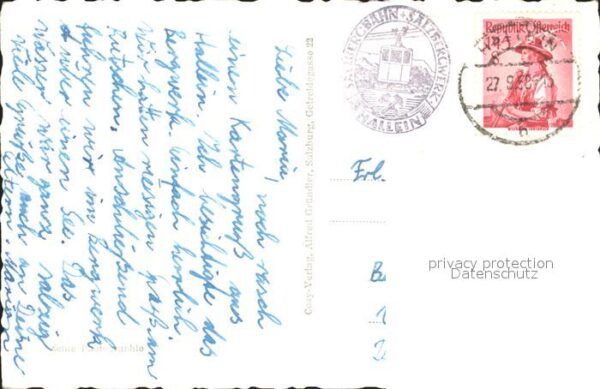 Liebe Mimmi, noch rasch
einen Kartengruß aus
Hallein. Ich besichtigte das
Bergwerk. Einfach herrlich
Wir hatten riesigen Spaß im
Rutschen. Anschließend
fuhren wir im Bergwerk
über einen See. Das
Wasser war ganz salzig
Viele Grüße, auch an Deine
Eltern.
Cosy-Verlag, Alfred Gründler, Salzburg, Getreidegasse 22
SALZBERGBAHN + SALZBERGWERK
HALLEIN
Republik Österreich
HALLEIN
27.8.
Frl.
B
privacy protection
Datenschutz